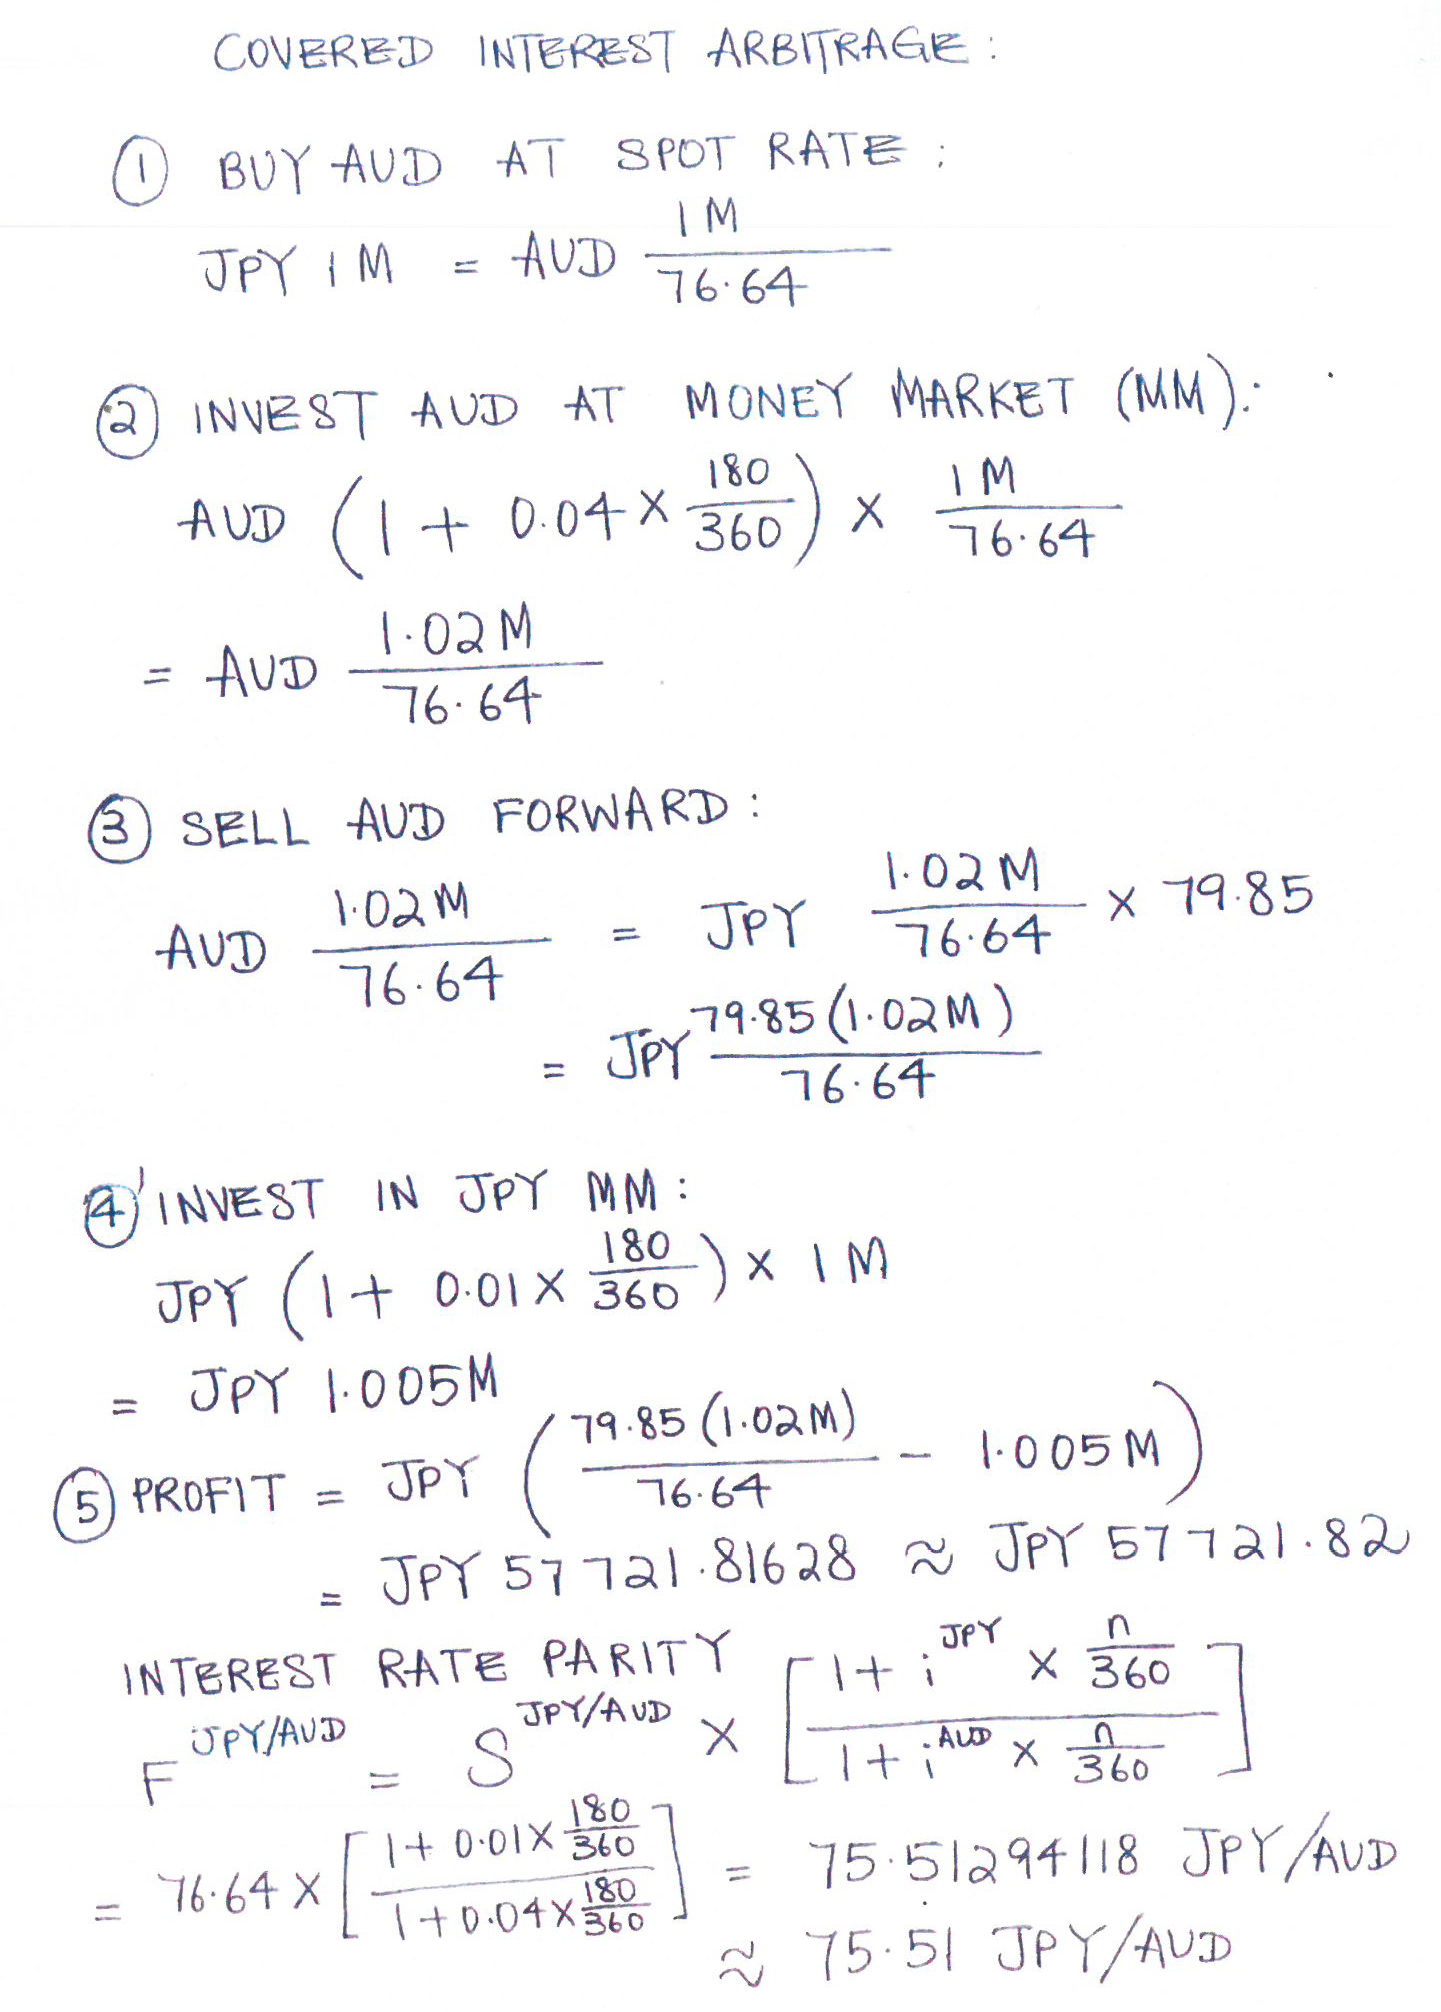 COVERED INTEREST ARBITRAGE:
① BUY AUD AT SPOT RATE:
JPY 1M = AUD 1M/76.64
② INVEST AUD AT MONEY MARKET (MM):
AUD (1 + 0.04 × 180/360) × 1M/76.64
= AUD 1.02M/76.64
③ SELL AUD FORWARD:
AUD 1.02M/76.64 = JPY 1.02M/76.64 × 79.85
= JPY 79.85(1.02M)/76.64
④ INVEST IN JPY MM:
JPY (1 + 0.01 × 180/360) × 1M
= JPY 1.005M
⑤ PROFIT = JPY (79.85(1.02M)/76.64 - 1.005M)
= JPY 57721.81628 ≈ JPY 57721.82
INTEREST RATE PARITY
F^JPY/AUD = S^JPY/AUD × [(1 + i^JPY × n/360)/(1 + i^AUD × n/360)]
= 76.64 × [(1 + 0.01 × 180/360)/(1 + 0.04 × 180/360)] = 75.51294118 JPY/AUD
≈ 75.51 JPY/AUD